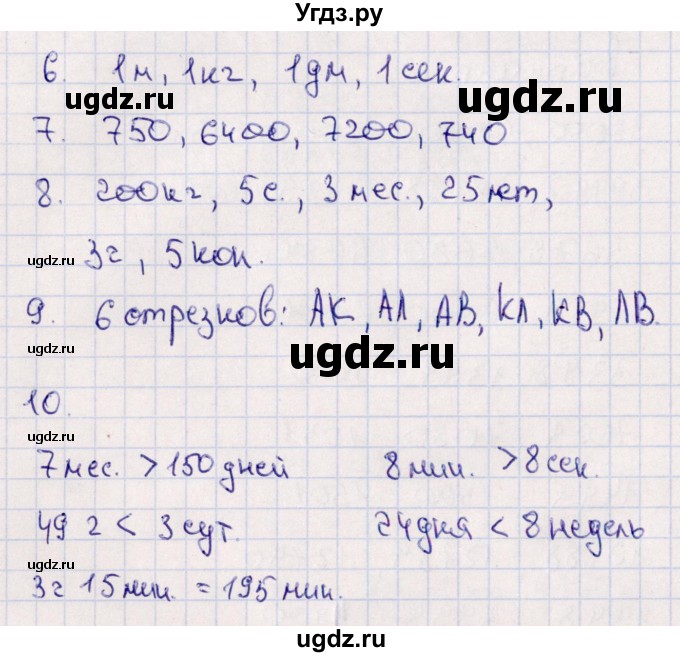 Угдз.ру
6. 1м, 1кг, 1дм, 1сек.
ugdz.ru ugdz.ru
7. 750, 6400, 7200, 740
8. 200кг, 5с., 3мес., 25лет,
ugdz.ru
3г, 5коп.
9. 6 отрезков: АК, АЛ, АВ, КЛ, КВ, ЛВ.
ugdz.ru ugdz.ru
10.
ugdz.ru
7мес. > 150дней 8мин. > 8сек.
49 г < 3сут. 24дня < 8недель
ugdz.ru
3г 15мин. = 195мин.
ugdz.ru